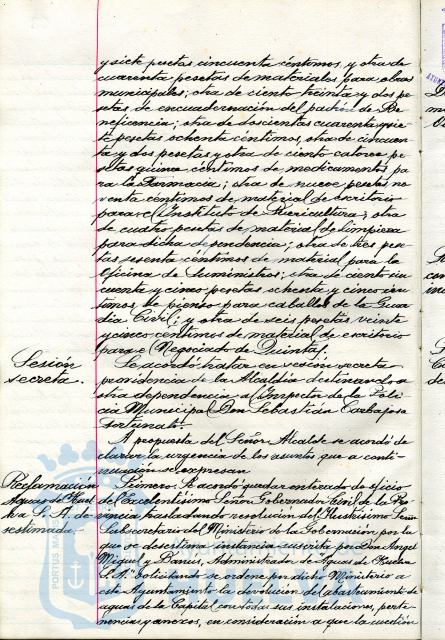 y siete pesetas cincuenta céntimos y otra de
cuarenta pesetas de materiales para obras
municipales; otra de ciento treinta y dos pe
setas de encuadernación del padrón de Be
neficencia; otra de doscientas cuarenta y sie
te pesetas ochenta céntimos, otra de cincuen
ta y dos pesetas y otra de ciento catorce pe
setas quince céntimos de medicamentos pa
ra la Farmacia; otra de nueve pesetas no
venta céntimos de material de escritorio
para el Instituto de Puericultura; otra
de cuatro pesetas de material de limpieza
para dicha dependencia; otra de tres pese
tas sesenta céntimos de material para la
Oficina de Suministros; otra de ciento cin
cuenta y cinco pesetas ochenta y cinco cén
timos de pienso para caballos de la Guar
dia Civil; y otra de seis pesetas veinte
y cinco céntimos de material de escritorio
para el Negociado de Quintas.
Sesión
secreta.
Se acordó tratar en sesión secreta
providencia de la Alcaldía destinando a
otra dependencia al Inspector de la Poli
cía Municipal Don Sebastián Carbajosa
Fortunato.
A propuesta del Señor Alcalde se acordó de
clarar la urgencia de los asuntos que a conti
nuación se expresan
Reclamación
Aguas de Huel
va S. A. de
sestimada.
Primero. Se acordó quedar enterado de oficio
del Excelentísimo Señor Gobernador Civil de la Pro
vincia trasladando resolución del Ilustrísimo Señor
Subsecretario del Ministerio de la Gobernación por la
que se desestima instancia suscrita por Don Angel
Miguel y Administrador de Aguas de Huelva
S. A. solicitando se ordene por dicho Ministerio a
este Ayuntamiento la devolución del abastecimiento de
aguas de la Capital con todas sus instalaciones, perte
nencias y anexos, en consideración a que la cuestión
PORTUS